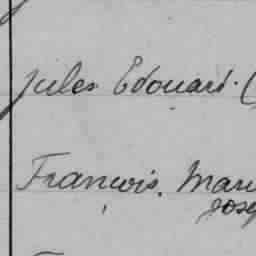 Jules Edouard. (
François. Mari
Josep